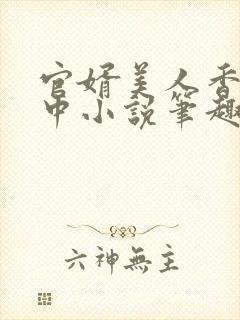 官婿美人香
中小说笔趣
六神無主